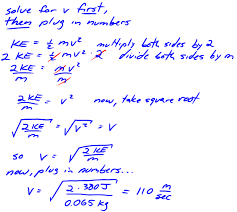 solve for v first,
then plug in numbers
KE = ½ mv² multiply both sides by 2
2 KE = ½ mv² · 2 divide both sides by m
2 KE / m = mv² / m
2 KE / m = v² now, take square root
√(2 KE / m) = √v² = V
so V = √(2 KE / m)
now, plug in numbers...
V = √(2 · 380 J / 0.065 kg) = 110 m/sec